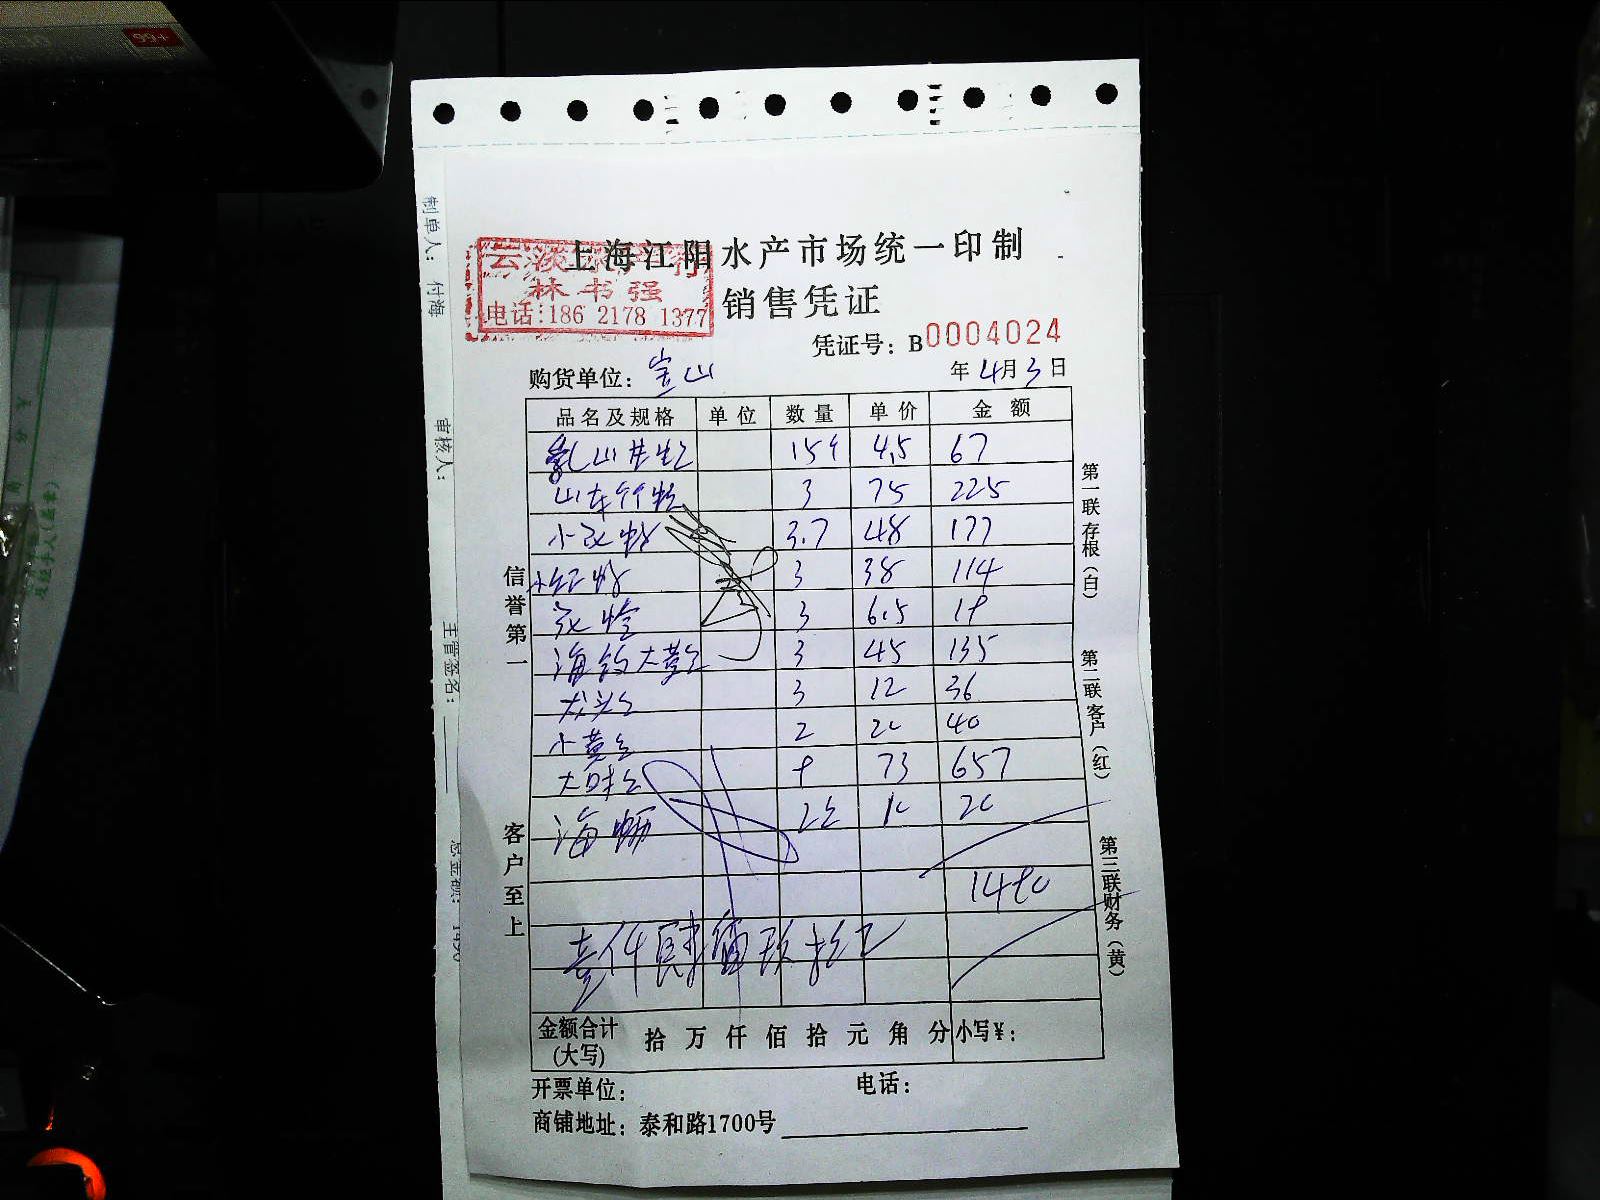 99+
制单人: 付海
审核人:
主管签名:
上海江阳水产市场统一印制
销售凭证
云淡水产行
林书强
电话:186 2178 1377
凭证号: B0004024
购货单位: 宝山
年 4月 3日
品名及规格 单位 数量 单价 金额
乳山生蚝 15个 4.5 67
山东竹蛏 3 75 225
小 3.7 48 177
小红 3 38 114
3 6.5 19
海 大黄 3 45 135
龙头 3 12 36
小黄 2 20 40
大 9 73 657
海蛎 2 10 20
1490
壹仟肆佰玖拾元
金额合计 拾 万 仟 佰 拾 元 角 分 小写¥:
(大写)
开票单位: 电话:
商铺地址: 泰和路1700号
信誉第一
客户至上
第一联存根(白)
第二联客户(红)
第三联财务(黄)